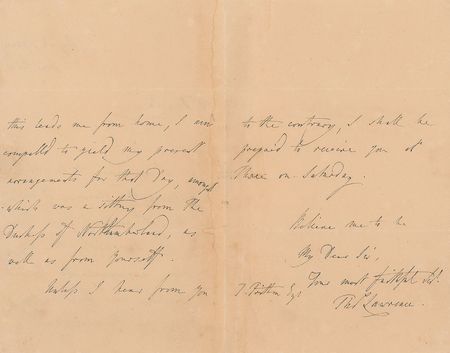 this leads me from home, I am
compelled to yield my present
arrangements for that Day, amongst
which was a sitting from the
Duchess of Northumberland, as
well as from yourself.
Unless I hear from you
to the contrary, I shall be
prepared to receive you at
Three on Saturday.
Believe me to be
My Dear Sir,
Your most faithful Sert.
Thos Lawrence.
Esqr